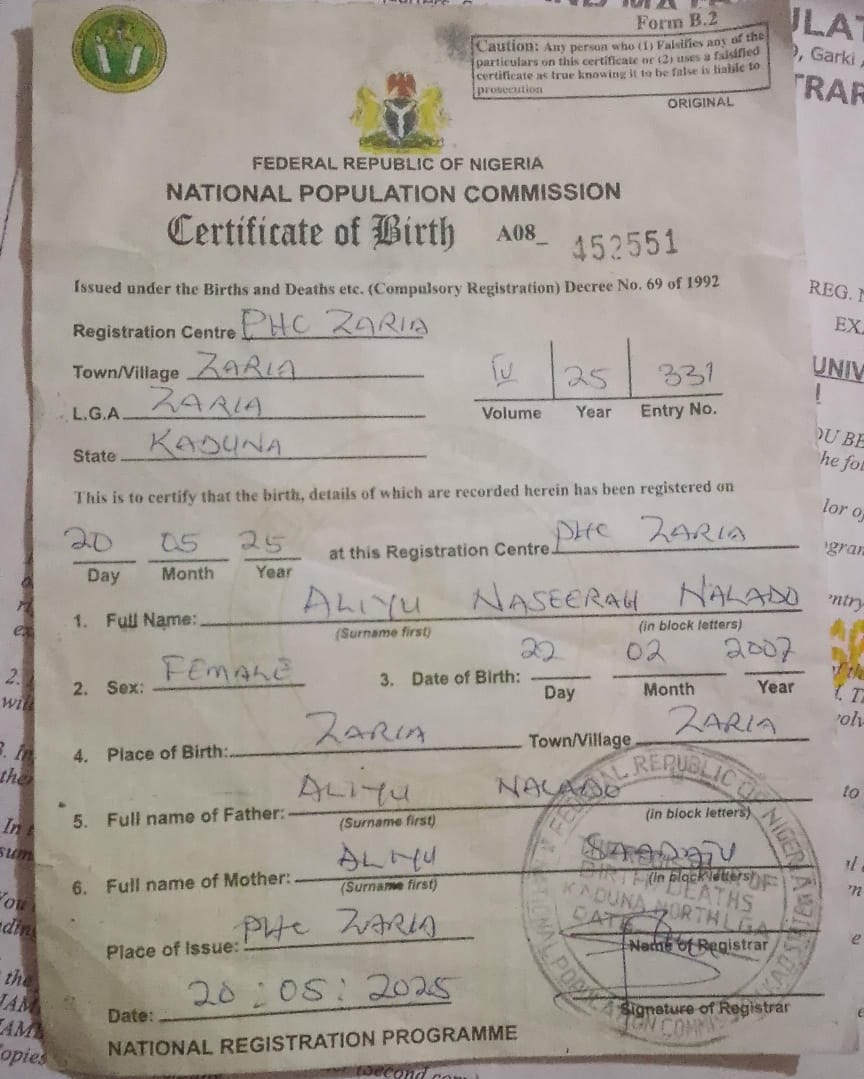 Form B.2
Caution: Any person who (1) Falsifies any of the
particulars on this certificate or (2) uses a falsified
certificate as true knowing it to be false is liable to
prosecution
ORIGINAL
FEDERAL REPUBLIC OF NIGERIA
NATIONAL POPULATION COMMISSION
Certificate of Birth A08_ 452551
Issued under the Births and Deaths etc. (Compulsory Registration) Decree No. 69 of 1992
Registration Centre PHC ZARIA
Town/Village ZARIA
L.G.A. ZARIA
State KADUNA
IV 25 331
Volume Year Entry No.
This is to certify that the birth, details of which are recorded herein has been registered on
20 05 25 at this Registration Centre PHC ZARIA
Day Month Year
1. Full Name: ALIYU NASEERAH NALADO
(Surname first) (in block letters)
2. Sex: FEMALE 3. Date of Birth: 22 02 2007
Day Month Year
4. Place of Birth: ZARIA Town/Village ZARIA
5. Full name of Father: ALIYU NALADO
(Surname first) (in block letters)
6. Full name of Mother: ALIYU SAADATU
(Surname first) (in block letters)
Place of Issue: PHC ZARIA
Name of Registrar
Date: 20:05:2025
Signature of Registrar
NATIONAL REGISTRATION PROGRAMME
FEDERAL REPUBLIC OF NIGERIA
DEATHS
KADUNA NORTH LGA
DATE
, Garki,
REG.
EX
UNIV